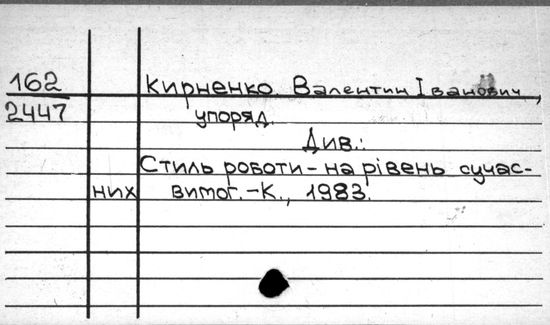 162
2447
Кирненко Валентин Іванович,
упоряд.
Див.:
Стиль роботи - на рівень сучас-
них вимог. - К., 1983.